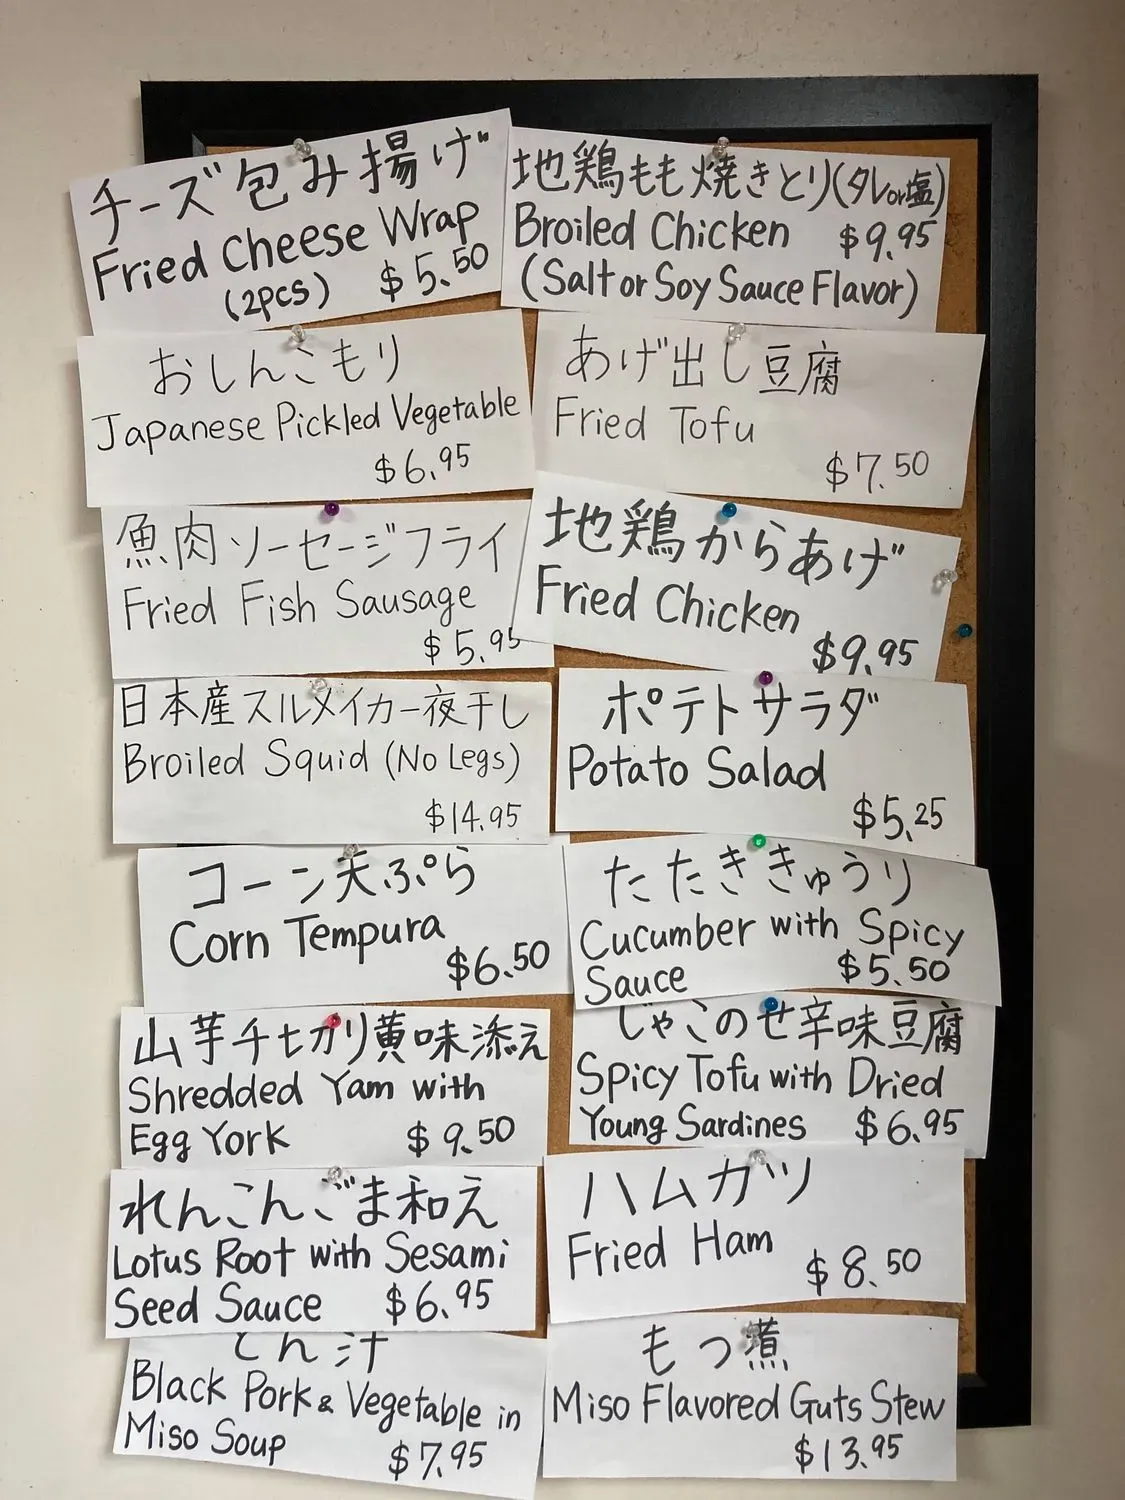 チーズ包み揚げ
Fried Cheese Wrap
(2pcs) $5.50
地鶏もも焼きとり(タレor塩)
Broiled Chicken $9.95
(Salt or Soy Sauce Flavor)
おしんこもり
Japanese Pickled Vegetable
$6.95
あげ出し豆腐
Fried Tofu
$7.50
魚肉ソーセージフライ
Fried Fish Sausage
$5.95
地鶏からあげ
Fried Chicken
$9.95
日本産スルメイカ一夜干し
Broiled Squid (No Legs)
$14.95
ポテトサラダ
Potato Salad
$5.25
コーン天ぷら
Corn Tempura
$6.50
たたききゅうり
Cucumber with Spicy
Sauce $5.50
山芋千切り黄味添え
Shredded Yam with
Egg York $9.50
じゃこのせ辛味豆腐
Spicy Tofu with Dried
Young Sardines $6.95
れんこんごま和え
Lotus Root with Sesami
Seed Sauce $6.95
ハムカツ
Fried Ham
$8.50
とん汁
Black Pork & Vegetable in
Miso Soup
$7.95
もつ煮
Miso Flavored Guts Stew
$13.95